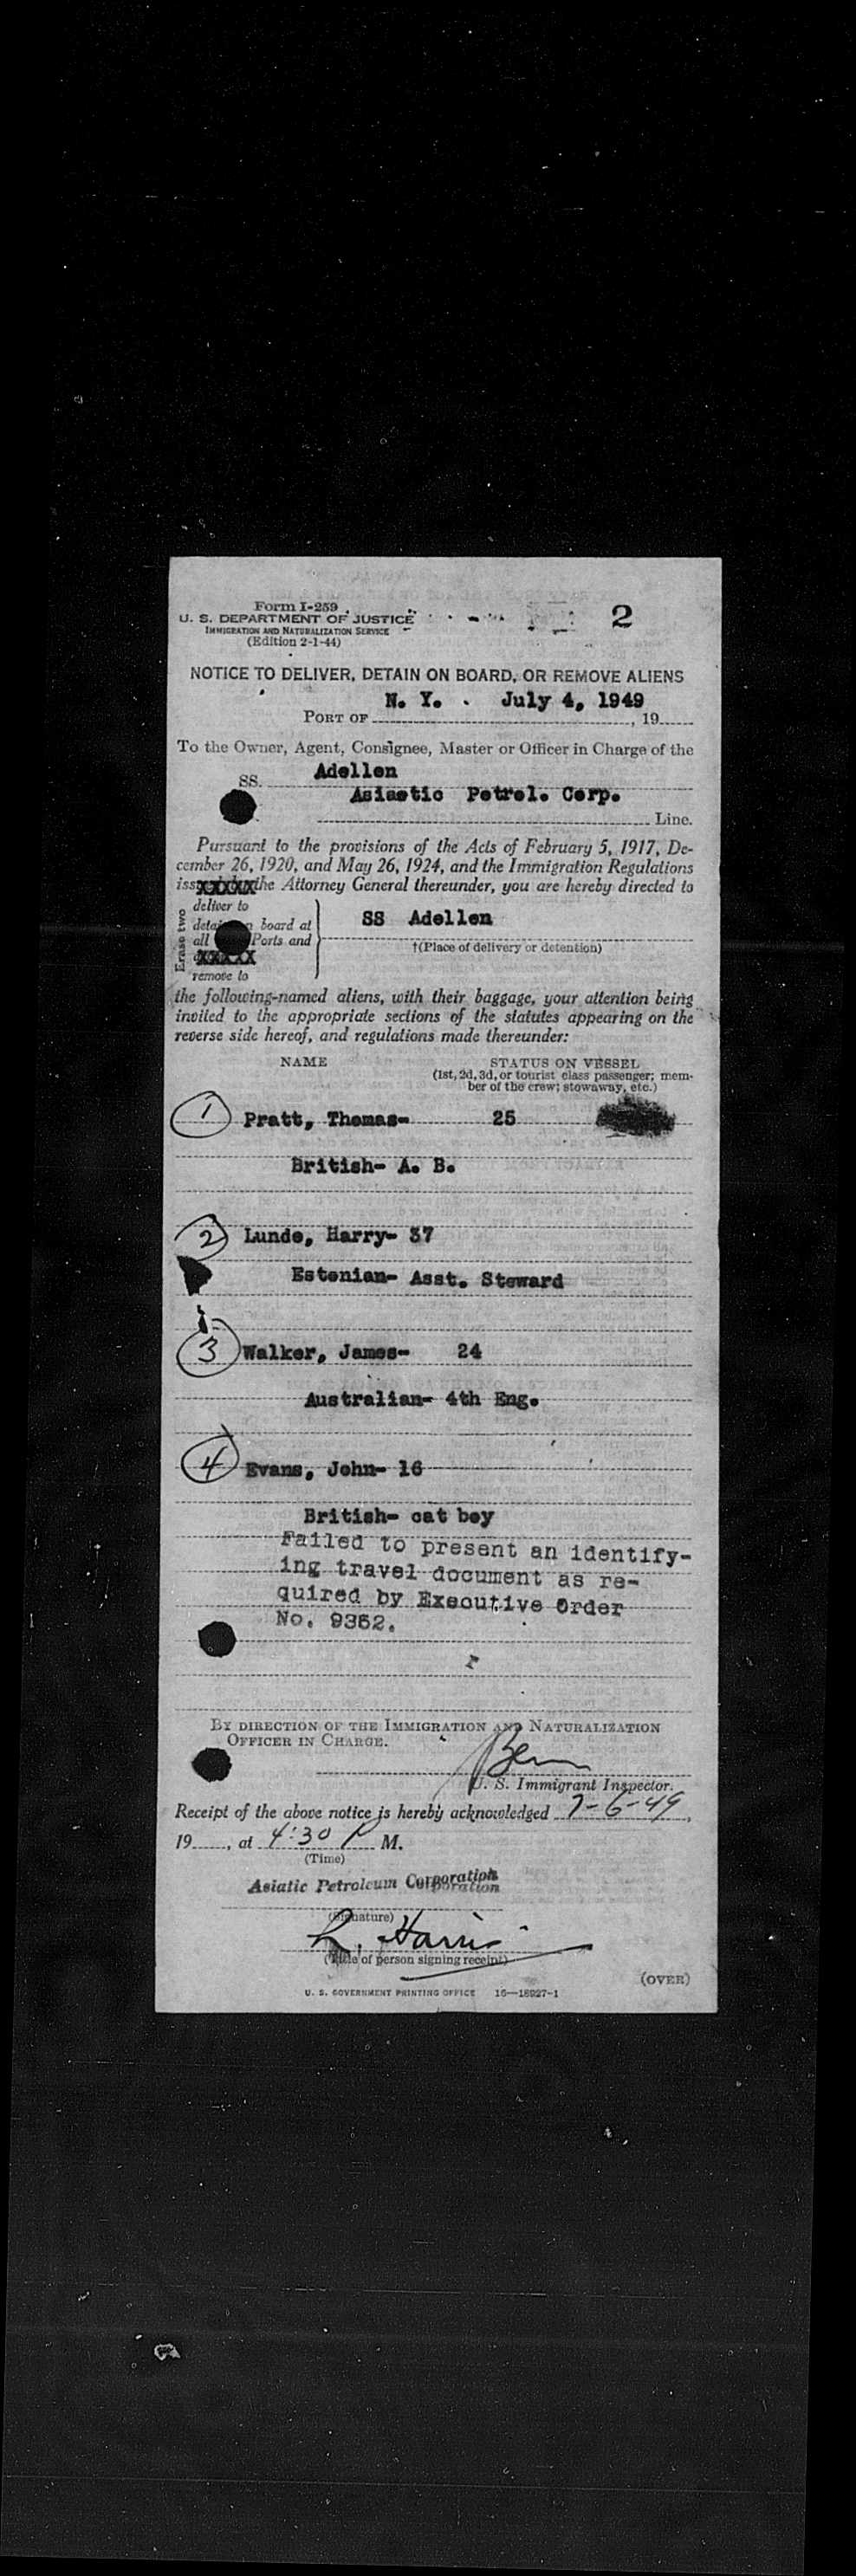 Form I-259
U. S. DEPARTMENT OF JUSTICE
IMMIGRATION AND NATURALIZATION SERVICE
(Edition 2-1-44)
2
NOTICE TO DELIVER, DETAIN ON BOARD, OR REMOVE ALIENS
N. Y. . July 4, 1949
PORT OF , 19
To the Owner, Agent, Consignee, Master or Officer in Charge of the
SS. Adellen
Asiastic Petrol. Corp.
Line.
Pursuant to the provisions of the Acts of February 5, 1917, De-
cember 26, 1920, and May 26, 1924, and the Immigration Regulations
iss XXXXX the Attorney General thereunder, you are hereby directed to
Erase two
deliver to
board at
all Ports and
XXXXX
remove to
SS Adellen
†(Place of delivery or detention)
the following-named aliens, with their baggage, your attention being
invited to the appropriate sections of the statutes appearing on the
reverse side hereof, and regulations made thereunder:
NAME STATUS ON VESSEL
(1st, 2d, 3d, or tourist class passenger; mem-
ber of the crew; stowaway, etc.)
1 Pratt, Thomas- 25
British- A. B.
2 Lunde, Harry- 37
Estonian- Asst. Steward
3 Walker, James- 24
Australian- 4th Eng.
4 Evans, John- 16
British- cat boy
Failed to present an identify-
ing travel document as re-
quired by Executive Order
No. 9352.
BY DIRECTION OF THE IMMIGRATION AND NATURALIZATION
OFFICER IN CHARGE.
U. S. Immigrant Inspector.
Receipt of the above notice is hereby acknowledged 7-6-49,
19, at 4:30 P M.
(Time)
Asiatic Petroleum Corporation
(Signature)
L. Harris
(Title of person signing receipt)
(OVER)
U. S. GOVERNMENT PRINTING OFFICE 16—18927-1